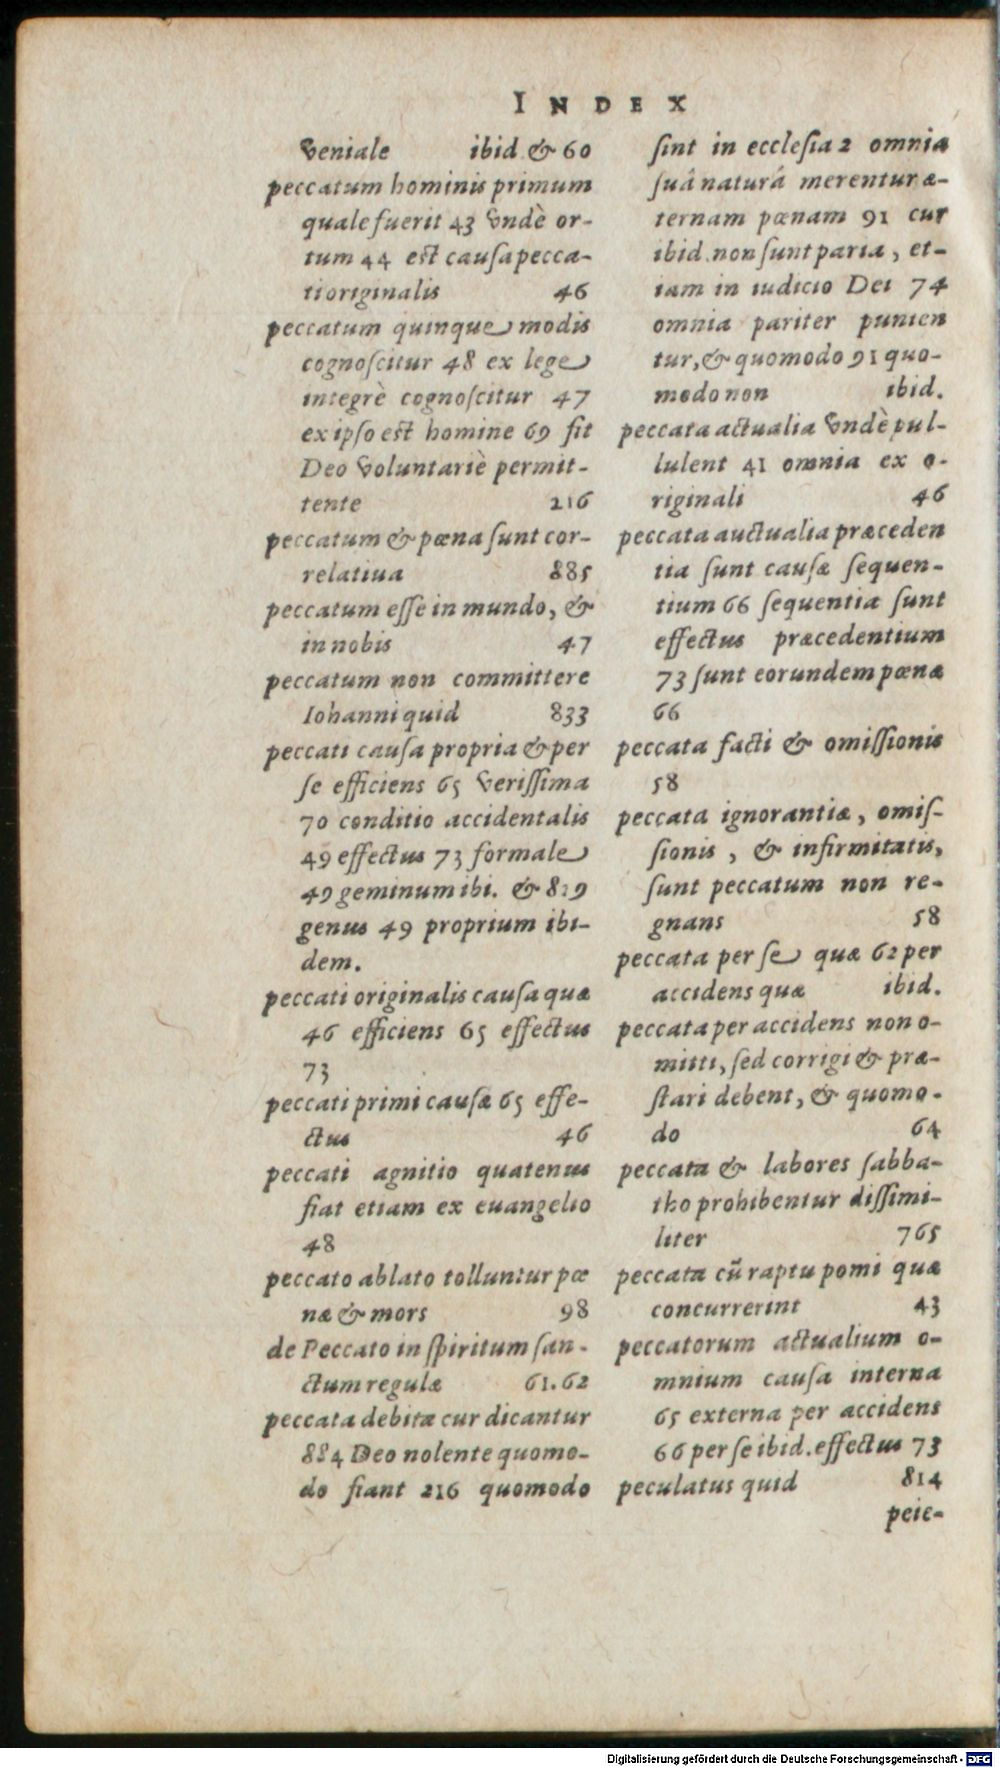 INDEX
veniale ibid & 60
peccatum hominis primum
quale fuerit 43 vndè or-
tum 44 est causa pecca-
ti originalis 46
peccatum quinque modis
cognoscitur 48 ex lege
integrè cognoscitur 47
ex ipso est homine 69 fit
Deo voluntariè permit-
tente 216
peccatum & pœna sunt cor-
relatiua 885
peccatum esse in mundo, &
in nobis 47
peccatum non committere
Iohanni quid 833
peccati causa propria & per
se efficiens 65 verissima
70 conditio accidentalis
49 effectus 73 formale
49 geminum ibi. & 819
genus 49 proprium ibi-
dem.
peccati originalis causa quæ
46 efficiens 65 effectus
73
peccati primi causæ 65 effe-
ctus 46
peccati agnitio quatenus
fiat etiam ex euangelio
48
peccato ablato tolluntur pœ
næ & mors 98
de Peccato in spiritum san-
ctum regulæ 61.62
peccata debita cur dicantur
884 Deo nolente quomo-
do fiant 216 quomodo
sint in ecclesia 2 omnia
suâ naturâ merentur æ-
ternam pœnam 91 cur
ibid. non sunt paria, et-
iam in iudicio Dei 74
omnia pariter punien
tur, & quomodo 91 quo-
modo non ibid.
peccata actualia vndè pul-
lulent 41 omnia ex o-
riginali 46
peccata auctualia præceden
tia sunt causæ sequen-
tium 66 sequentia sunt
effectus præcedentium
73 sunt eorundem pœnæ
66
peccata facti & omissionis
58
peccata ignorantiæ, omis-
sionis, & infirmitatis,
sunt peccatum non re-
gnans 58
peccata per se quæ 62 per
accidens quæ ibid.
peccata per accidens non o-
mitti, sed corrigi & præ-
stari debent, & quomo-
do 64
peccata & labores sabba-
tho prohibentur dissimi-
liter 765
peccata cũ raptu pomi quæ
concurrerint 43
peccatorum actualium o-
mnium causa interna
65 externa per accidens
66 per se ibid. effectus 73
peculatus quid 814
peie-
Digitalisierung gefördert durch die Deutsche Forschungsgemeinschaft - DFG